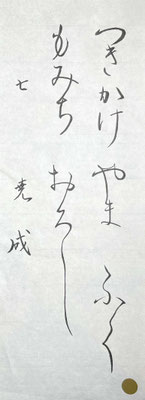 つきかけ やま ふく
もみち おろし
七 堯成